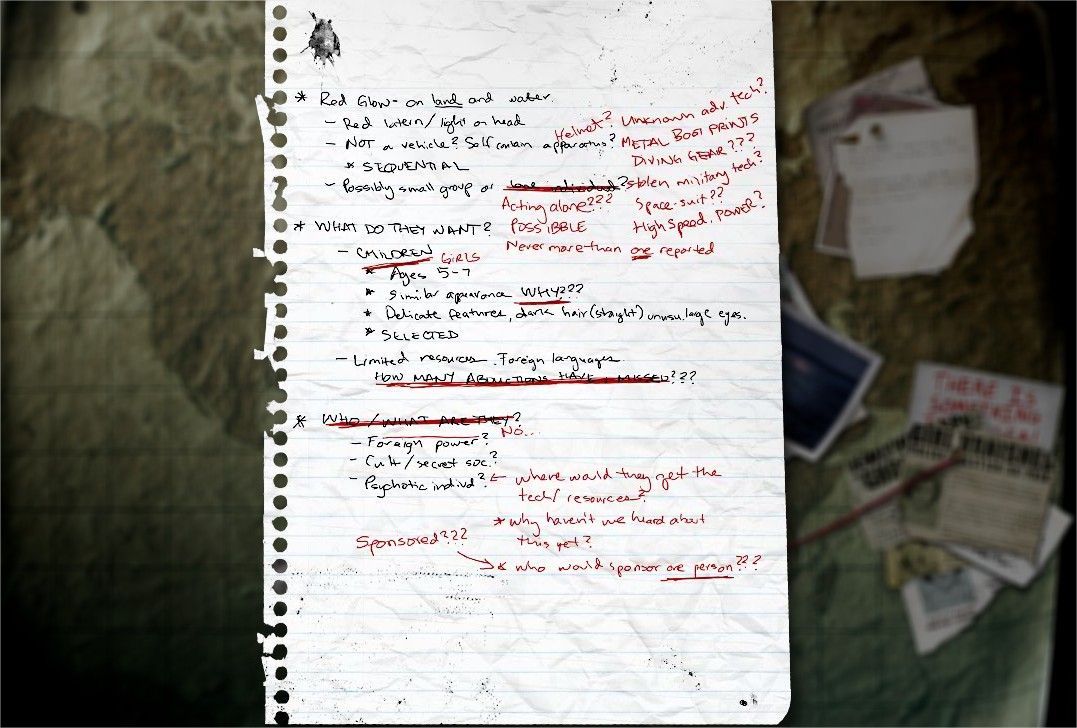 * Red Glow- on land and water.
- Red latern/light on head
Helmet? Unknown adv. tech?
- NOT a vehicle? Self contain apparatus? METAL BOOT PRINTS
* SEQUENTIAL
DIVING GEAR???
- Possibly small group or lone individual? stolen military tech?
Acting alone??? Space-suit??
* WHAT DO THEY WANT? POSSIBLE High Speed, Power?
- CHILDREN GIRLS Never more than one reported
* Ages 5-7
* Similar apearance WHY???
* Delicate features, dark hair(staight) unusu.large eyes.
* SELECTED
- Limited resources. Foreign languages.
HOW MANY ABDUCTIONS HAVE I MISSED???
* WHO/WHAT ARE THEY?
NO...
- Foraign power?
- Cult/secret soc.?
- Psychotic individ? ← where would they get the
tech/resources?
* why haven't we heard about
this yet?
Sponsored???
* who would sponsor one person???
THERE IS
SOMETHING